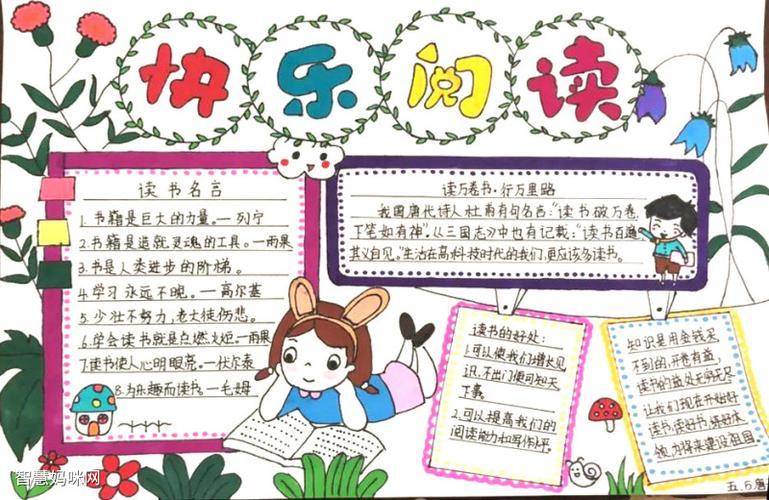 快乐阅读
读书名言
1.书籍是巨大的力量。一列宁
2.书籍是造就灵魂的工具。一雨果
3.书是人类进步的阶梯。
4.学习永远不晚。一高尔基
5.少壮不努力,老大徒伤悲。
6.学会读书就是点燃火炬。一雨果
7.读书使人心明眼亮。一伏尔泰
8.为乐趣而读书。一毛姆
读万卷书·行万里路
我国唐代诗人杜甫有句名言:"读书破万卷,
下笔如有神",从三国志少中也有记载:"读书百遍
其义自见。"生活在高科技时代的我们,更应该多读书。
读书的好处:
1.可以使我们增长见
识,不出门便可知天
下事。
2.可以提高我们的
阅读能力和写作水平。
知识是用金钱买
不到的,开卷有益,
读书的益处无穷无尽
让我们现在开始好
读书,读好书,练好本
领,为将来建设祖国
五.5.詹
智慧妈咪网